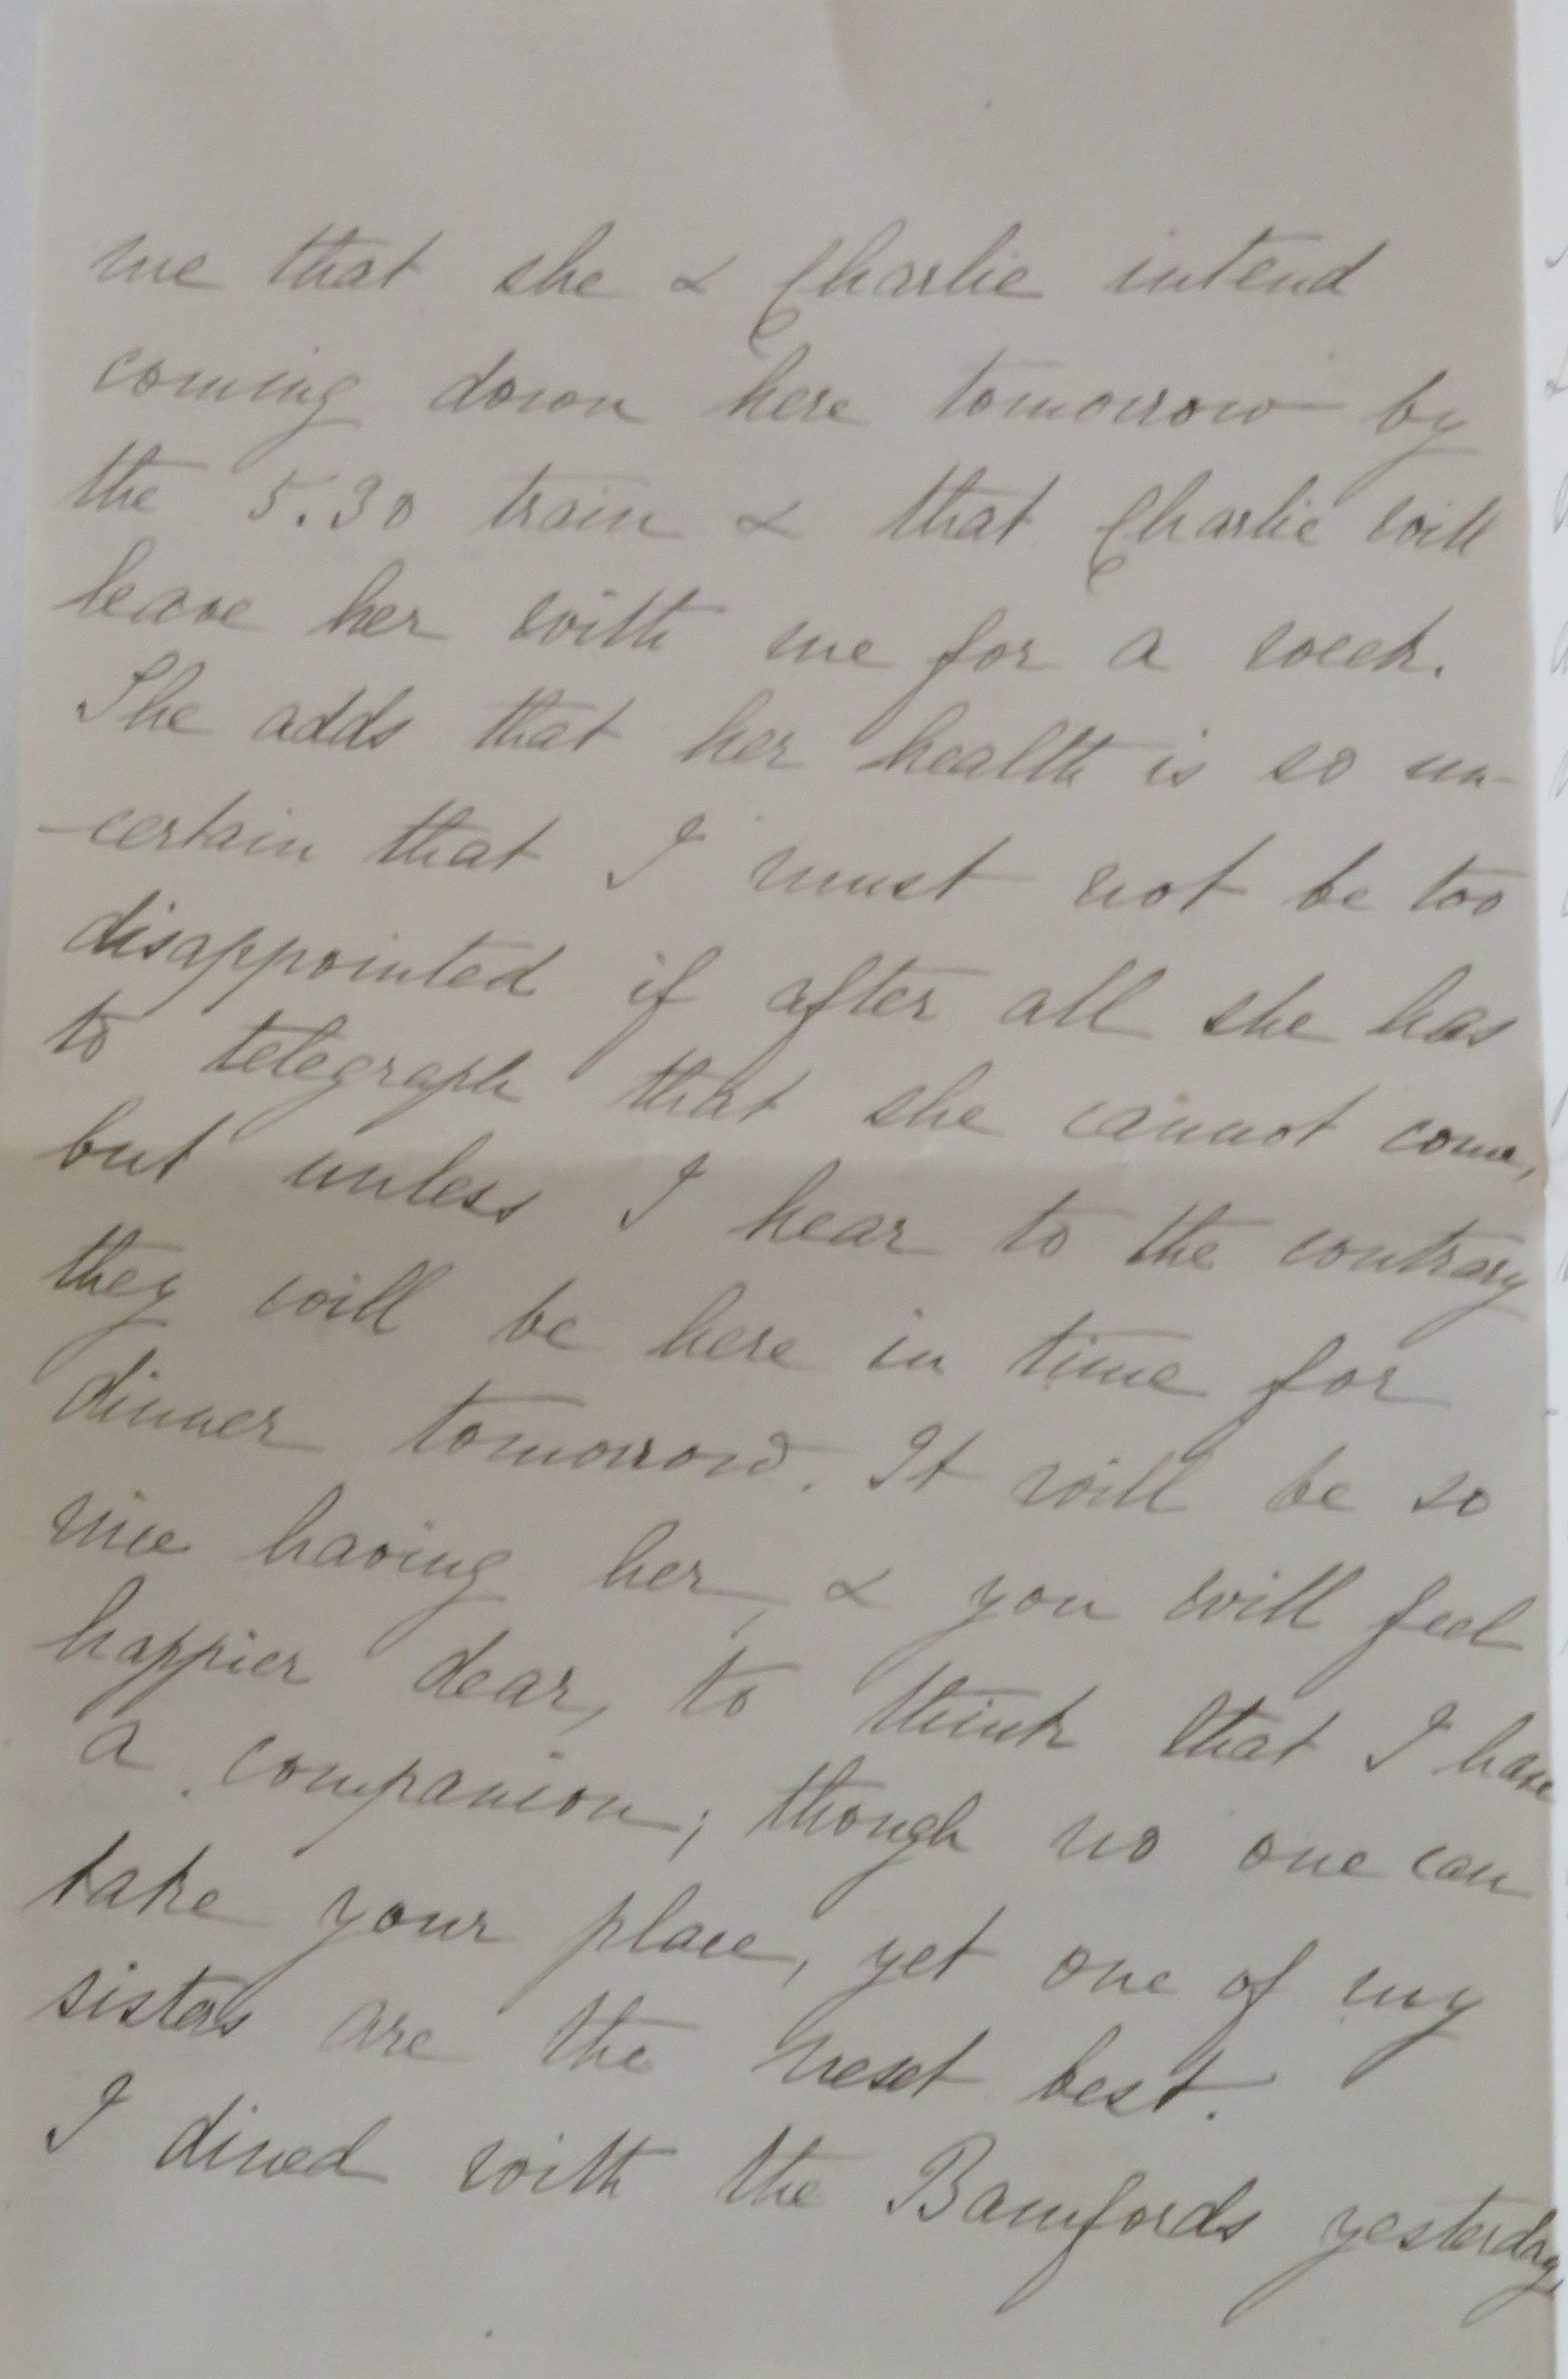 me that she & Charlie intend
coming down here tomorrow by
the 5.30 train & that Charlie will
leave her with me for a week.
She adds that her health is so un-
-certain that I must not be too
disappointed if after all she has
to telegraph that she cannot come,
but unless I hear to the contrary
they will be here in time for
dinner tomorrow. It will be so
nice having her, & you will feel
happier dear, to think that I have
a companion; though no one can
take your place, yet one of my
sisters are the next best.
I dined with the Bamfords yesterday,